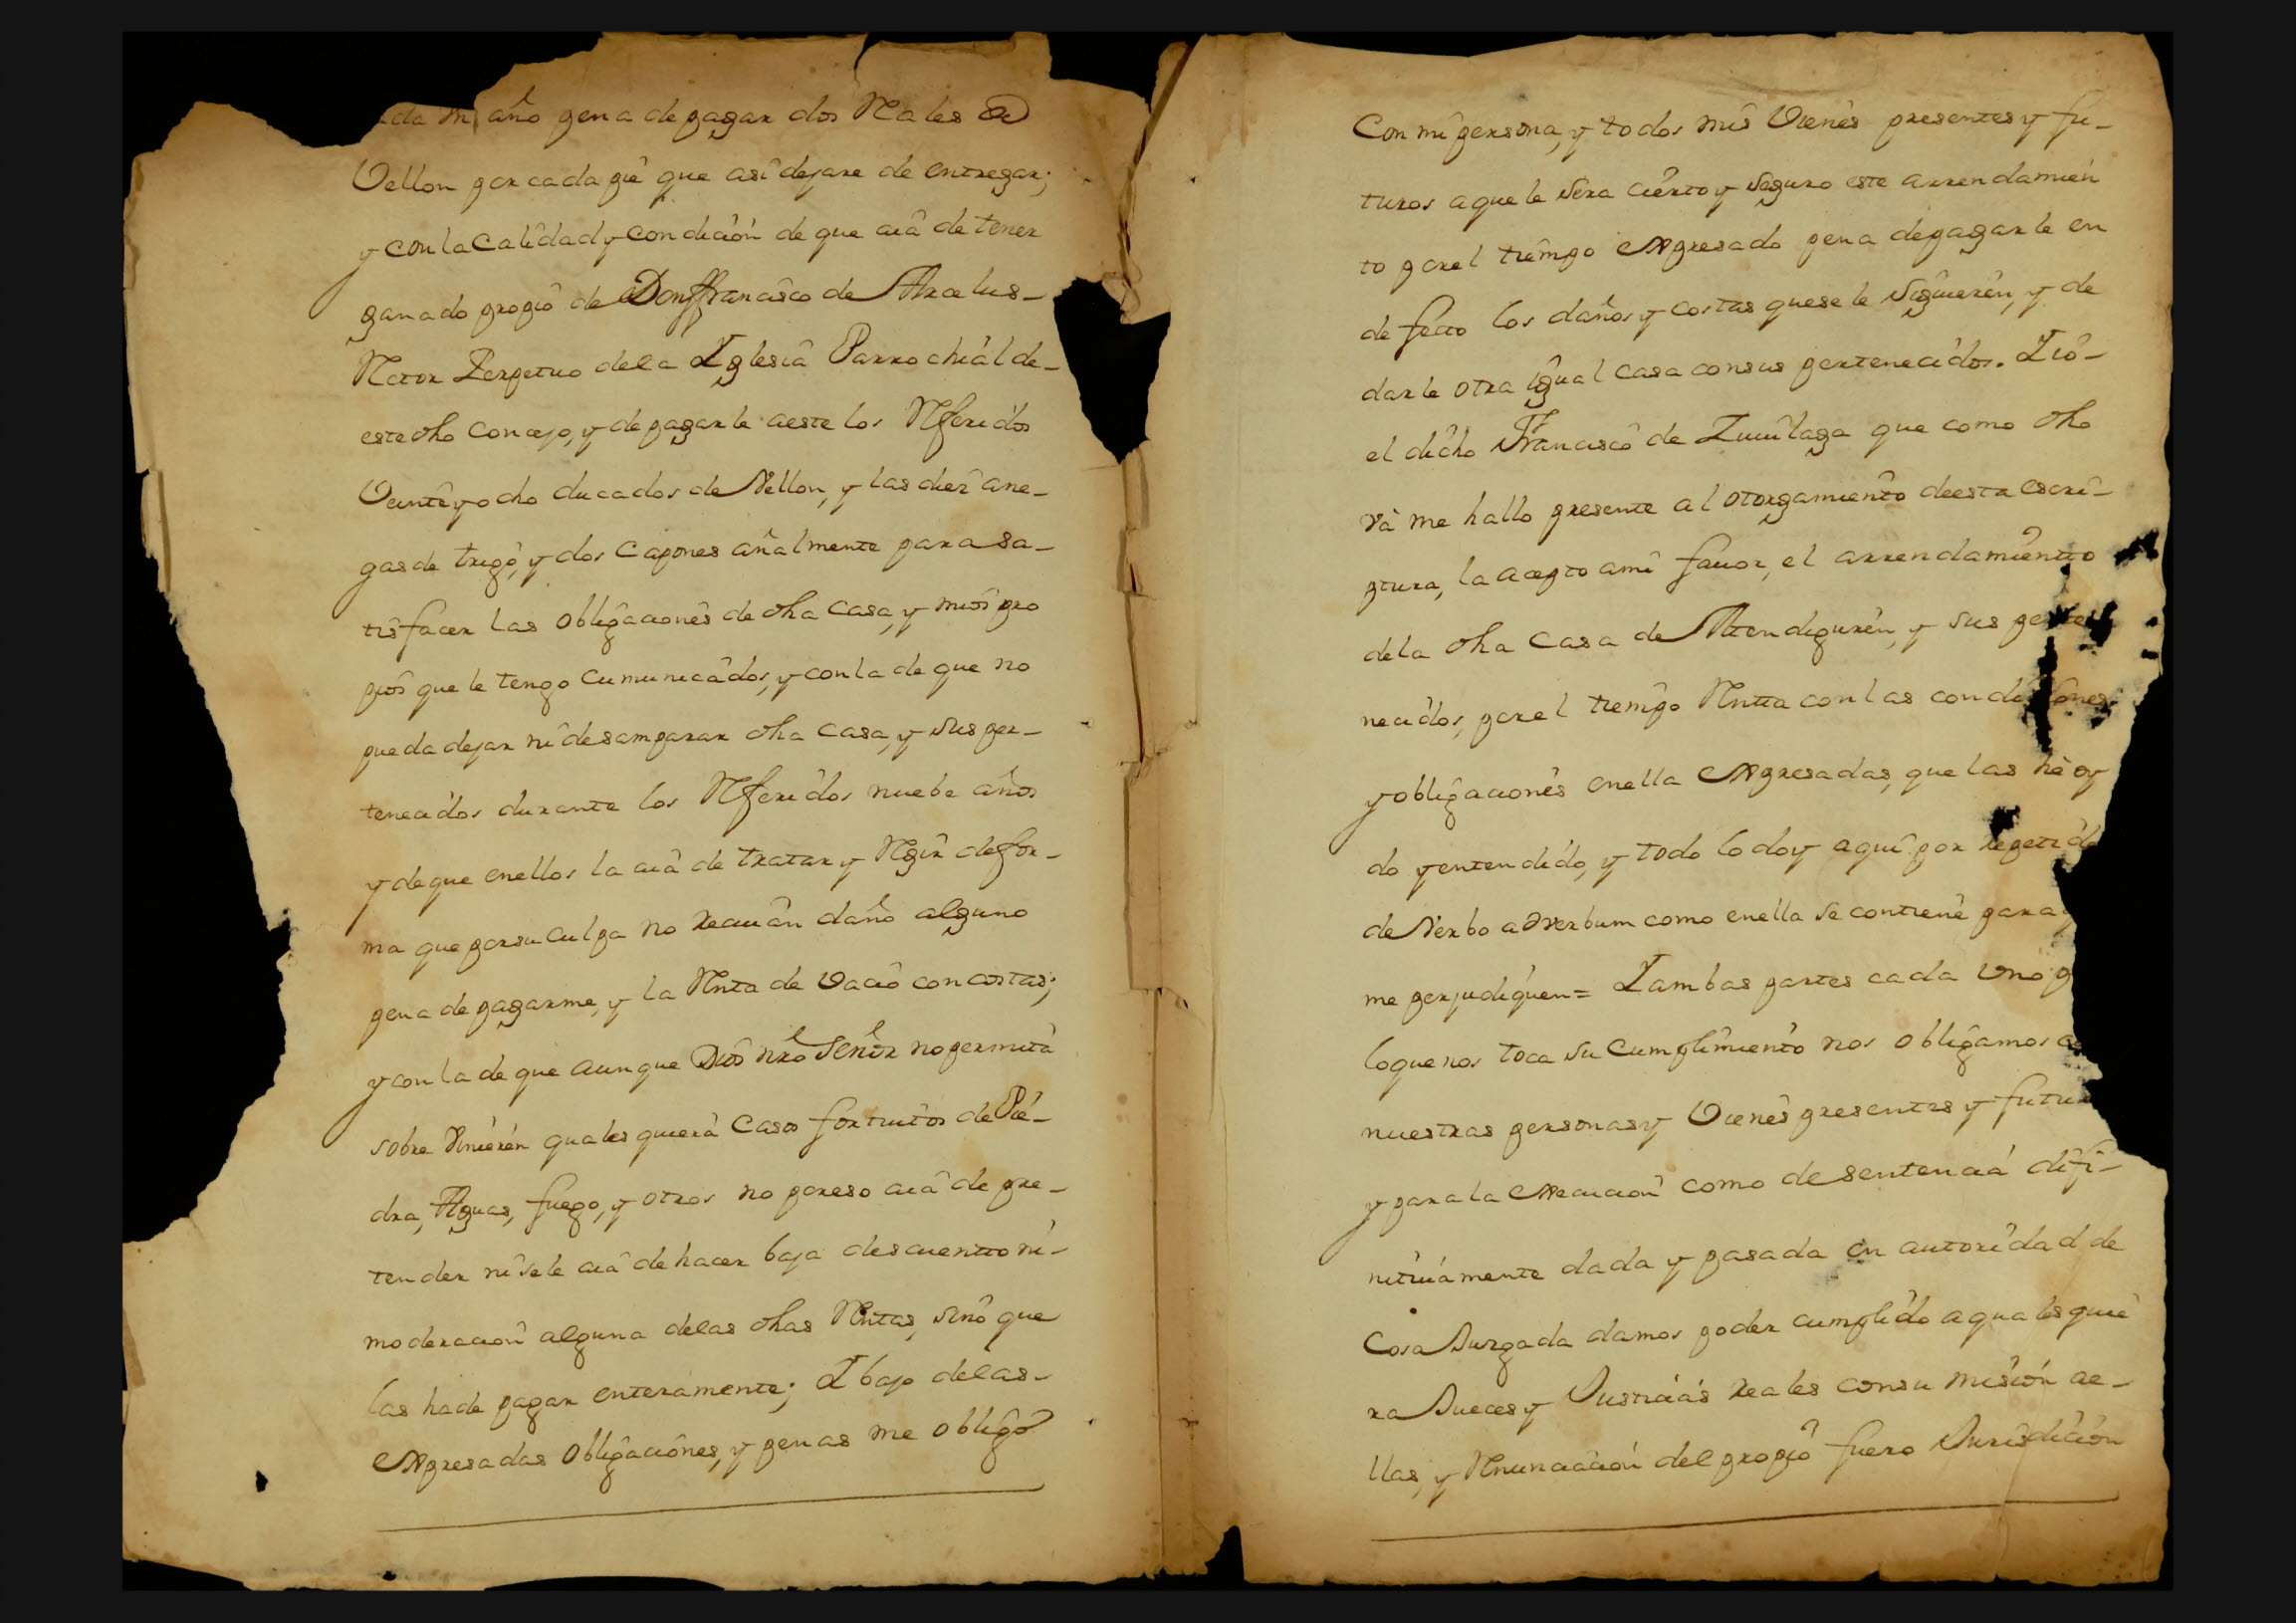 cada un año pena de pagar dos Reales de
Vellon por cada pie que asi dejare de entregar;
y con la Calidad y condicion de que aia de tener
ganado propio de Don Francisco de Arcelus-
Retor Perpetuo de la Yglesia Parrochial de-
este dho concejo, y de pagarle a este los Referidos
Veinte y ocho ducados de Vellon, y las diez ane-
gas de trigo, y dos Capones añalmente para sa-
tisfacer las obligaciones de dha Casa, y mios pro
pios que le tengo cumunicados, y con la de que no
pueda dejar ni desamparar dha Casa, y sus per-
tenecidos durante los Referidos nuebe años
y de que en ellos la aia de tratar y Regir de for-
ma que por su culpa no reciuan daño alguno
pena de pagarme, y la Renta de Vacio con costas;
y con la de que aunque Dios nro Señor no permita
sobre Vinieren quales quiera Casos fortuitos de Pie-
dra, Aguas, fuego, y otros no por eso aia de pre-
tender ni se le aia de hacer baja descuentto ni-
moderacion alguna de las dhas Rentas, sino que
las ha de pagar enteramente; Y bajo de las-
expresadas obligaciones, y penas me obligo
Con mi persona, y todos mis Vienes presentes y fu-
turos a que le sera cierto y seguro este arrendamien
to por el tiempo expresado pena de pagarle en
defecto los daños y costas que se le siguieren, y de
darle otra igual casa con sus pertenecidos. Y io-
el dicho Francisco de Zuuilaga que como dho
va me hallo presente al otorgamiento de esta escri-
ptura, la acepto a mi fauor, el arrendamientto
de la dha Casa de Atendiguren, y sus perte
necidos, por el tiempo Rentta con las condiciones
y obligaciones en ella expresadas, que las he oy
do y entendido, y todo lo doy aqui por repetido
de Verbo adverbum como en ella se contiene para q
me perjudiquen= Y ambas partes cada uno p
lo que nos toca su cumplimiento nos obligamos co
nuestras personas y Vienes presentes y futur
y para la execucion como de sentencia difi-
nitiuamente dada y pasada en autoridad de
Cosa Juzgada damos poder cumplido a quales quie
ra Jueces y Justicias reales con su mision ae-
llas, y Renunciacion del propio fuero Jurisdicion